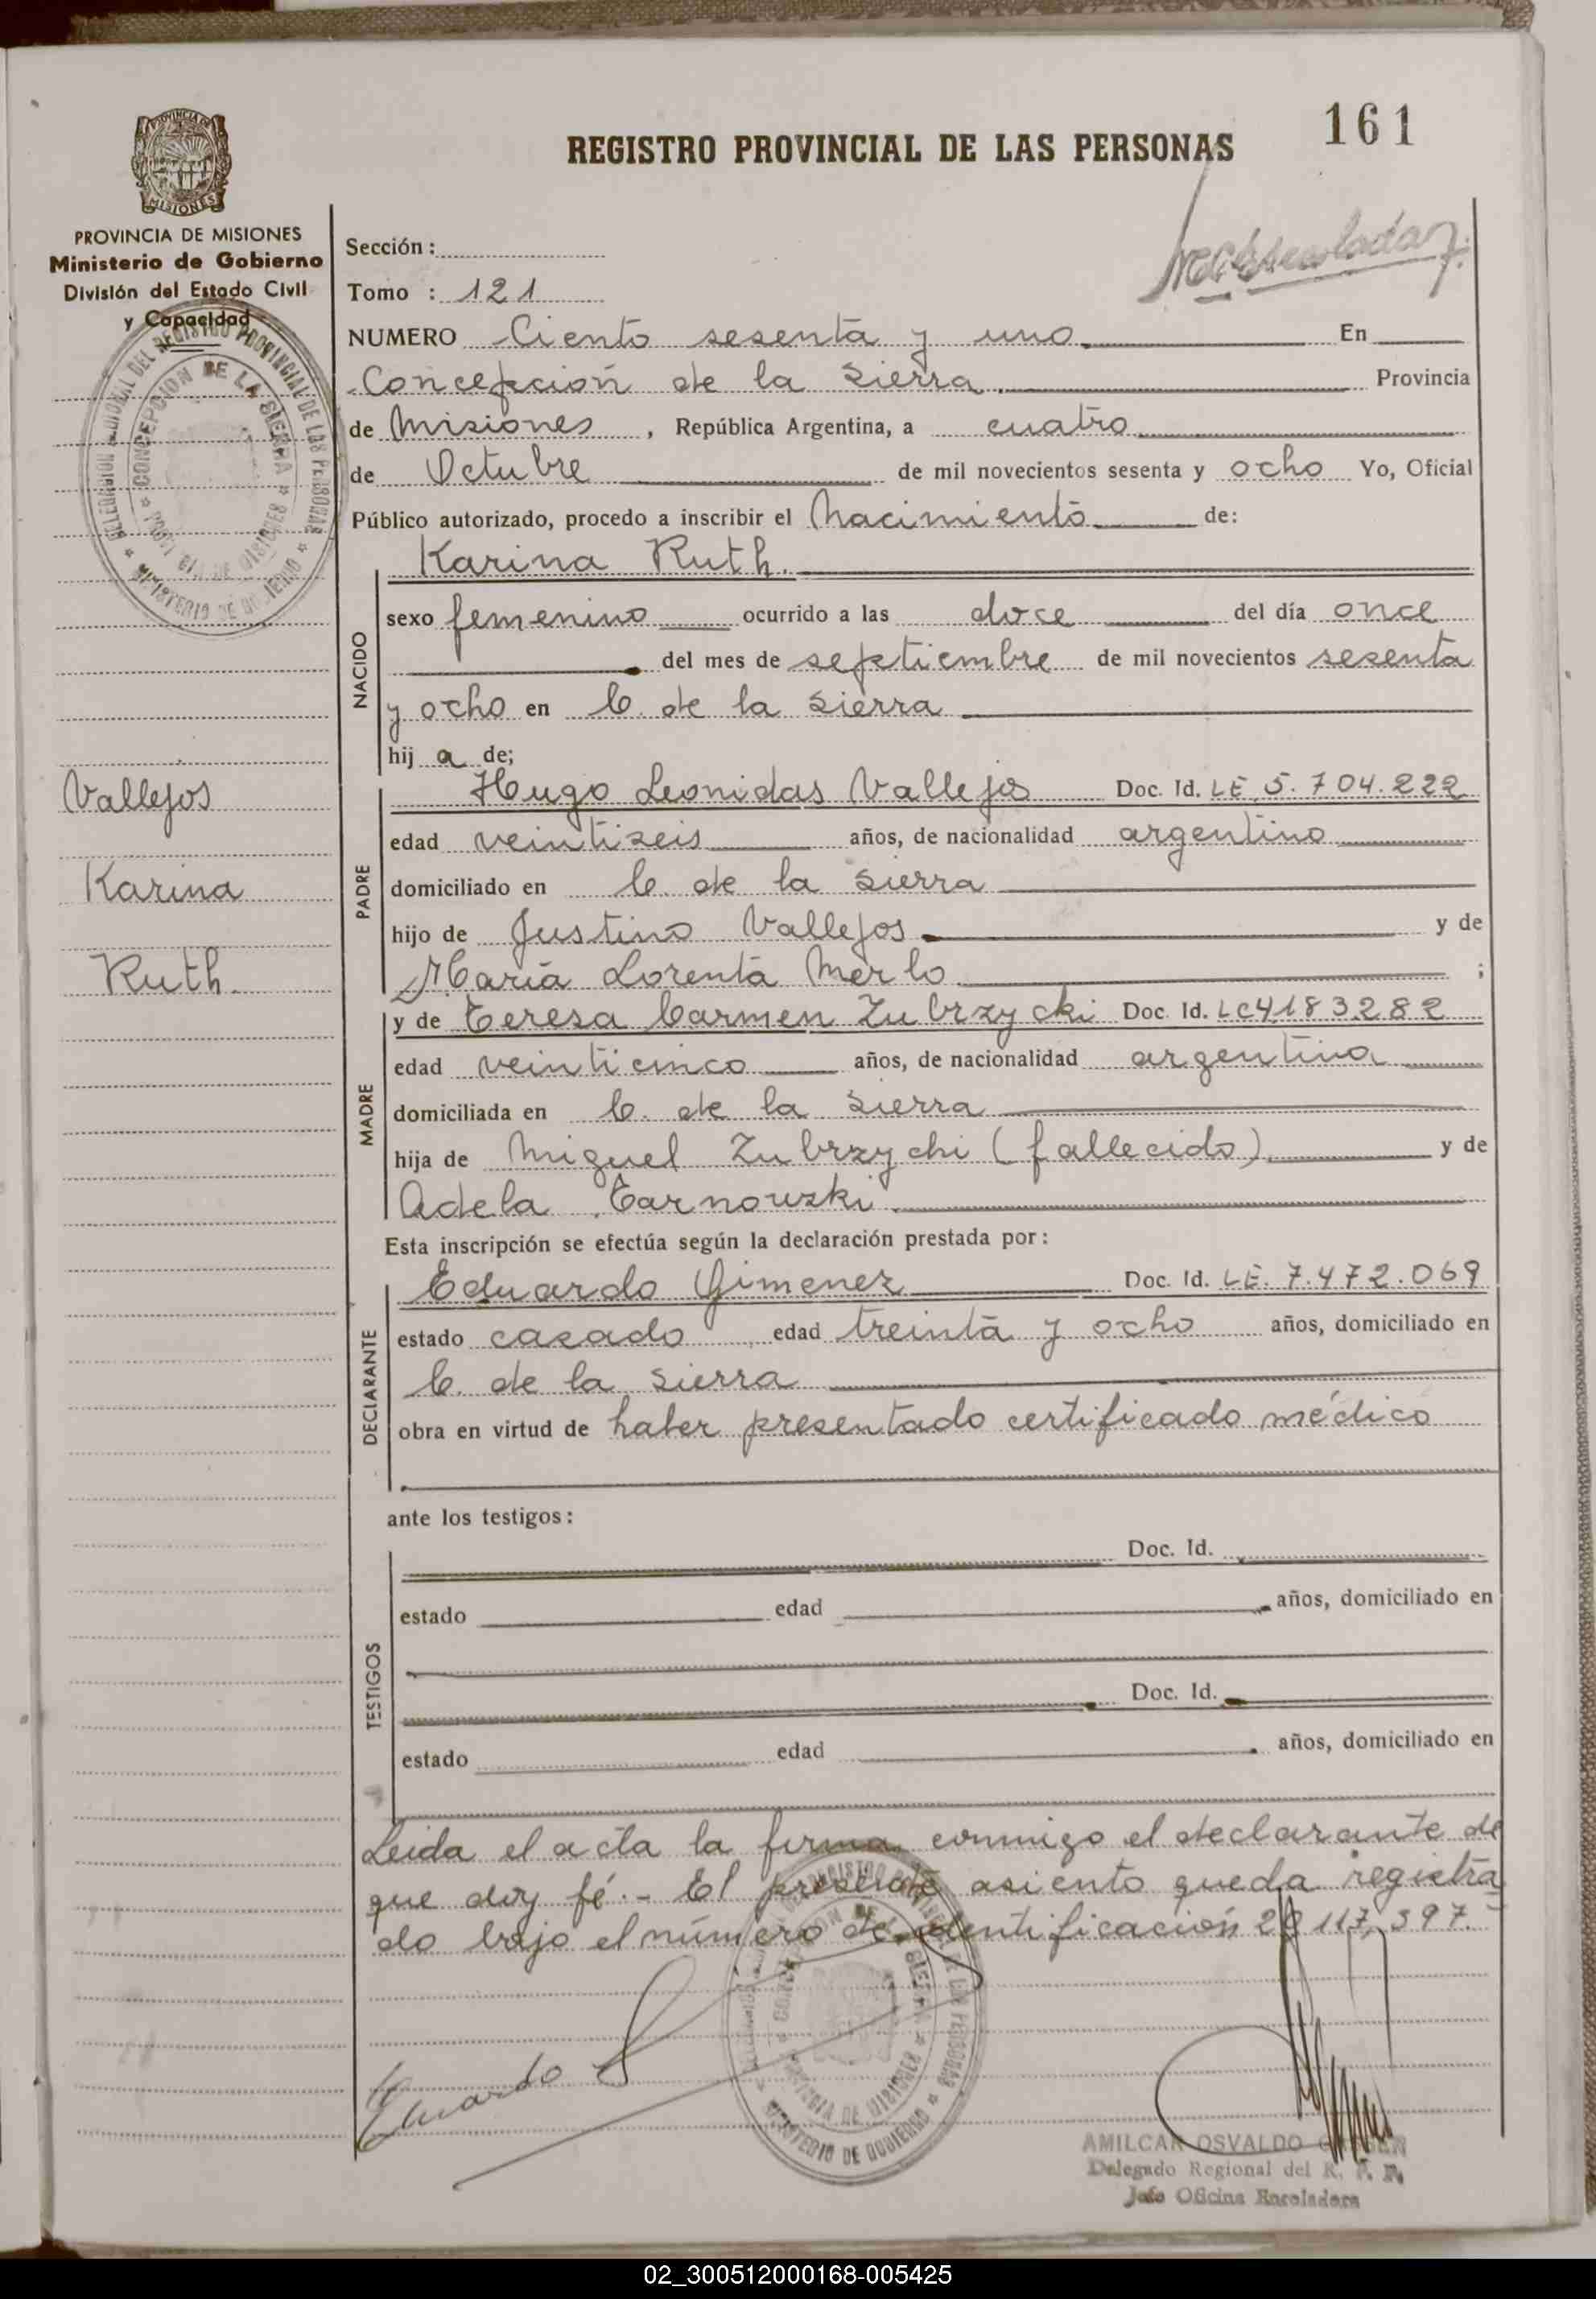 161
REGISTRO PROVINCIAL DE LAS PERSONAS
PROVINCIA DE MISIONES
Ministerio de Gobierno
División del Estado Civil
y Capacidad
Sección :
Tomo : 121
NUMERO Ciento sesenta y uno En
Concepción de la Sierra Provincia
de Misiones , República Argentina, a cuatro
de Octubre de mil novecientos sesenta y ocho Yo, Oficial
Público autorizado, procedo a inscribir el Nacimiento de:
Karina Ruth.
NACIDO
sexo femenino ocurrido a las doce del día once
del mes de septiembre de mil novecientos sesenta
y ocho en C. de la Sierra
hij a de;
Vallejos
Karina
Ruth.
PADRE
Hugo Leonidas Vallejos Doc. Id. LE 5.704.222
edad veintiseis años, de nacionalidad argentino
domiciliado en C. de la Sierra
hijo de Justino Vallejos y de
María Lorenta Merlo ;
MADRE
y de Teresa Carmen Zubrzycki Doc. Id. LC4183282
edad veinticinco años, de nacionalidad argentina
domiciliada en C. de la Sierra
hija de Miguel Zubrzychi (fallecido) y de
Adela Tarnowski.
Esta inscripción se efectúa según la declaración prestada por:
DECLARANTE
Eduardo Gimenez Doc. Id. LE. 7.472.069
estado casado edad treinta y ocho años, domiciliado en
C. de la Sierra
obra en virtud de haber presentado certificado médico
ante los testigos:
TESTIGOS
Doc. Id.
estado edad años, domiciliado en
Doc. Id.
estado edad años, domiciliado en
Leida el acta la firma conmigo el declarante de
que doy fé.- El presente asiento queda registra
do bajo el número de identificación 20.117,397.-
Eduardo
AMILCAR OSVALDO
Delegado Regional del R. P. P.
Jefe Oficina Enroladora
DELEGACION REGIONAL DEL REGISTRO PROVINCIAL DE LAS PERSONAS
CONCEPCION DE LA SIERRA
PROVINCIA DE MISIONES
MINISTERIO DE GOBIERNO
02_300512000168-005425